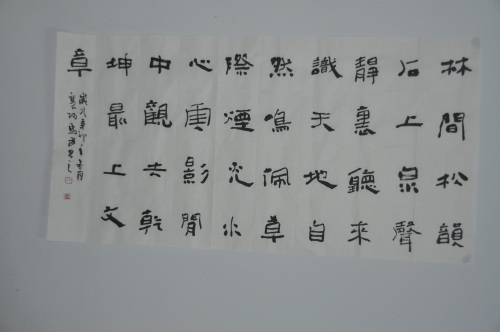 林間松韻
石上泉聲
靜裏聽來
識天地自
然鳴佩草
際煙光水
心雲影閒
中觀去乾
坤最上文
章
歲次辛卯年冬月